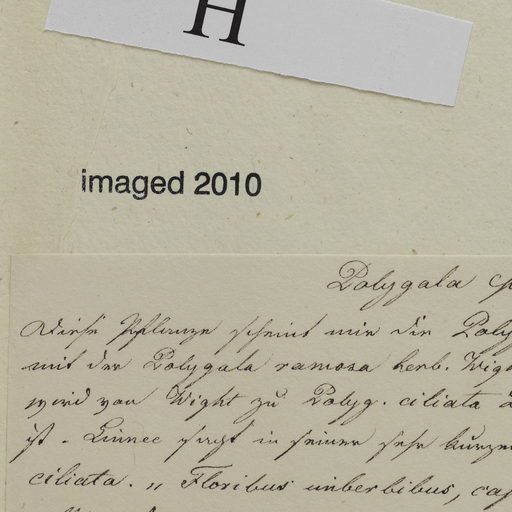 H
imaged 2010
Polygala
Diese Pflanze scheint mir die Poly
mit der Polygala ramosa herb. Wig
wird von Wight zu Polyg. ciliata
ist. Linnee sagt in seiner sehr kurzen
ciliata. „ Floribus imberbibus, ca